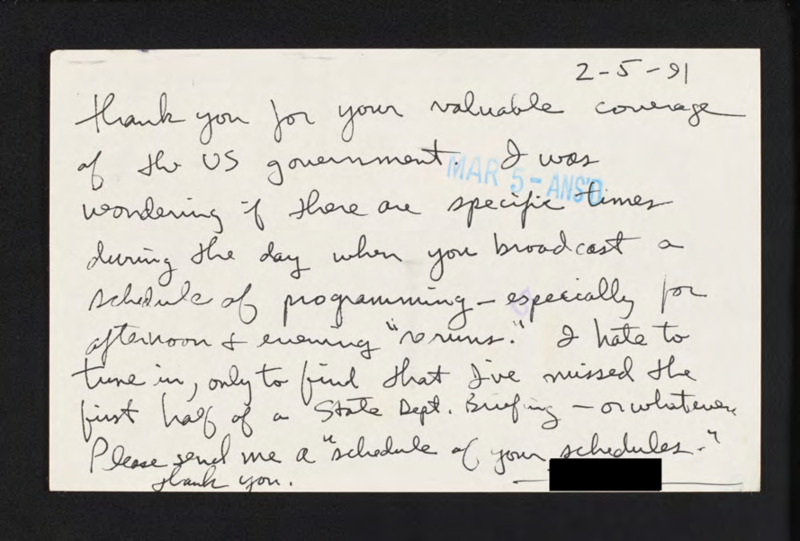 2-5-91
Thank you for your valuable coverage
of the US government. I was
MAR 5 - ANS'D
wondering if there are specific times
during the day when you broadcast a
schedule of programming - especially for
afternoon & evening "reruns." I hate to
tune in, only to find that I've missed the
first half of a State Dept. Briefing - or whatever.
Please send me a "schedule of your schedules."
Thank you.